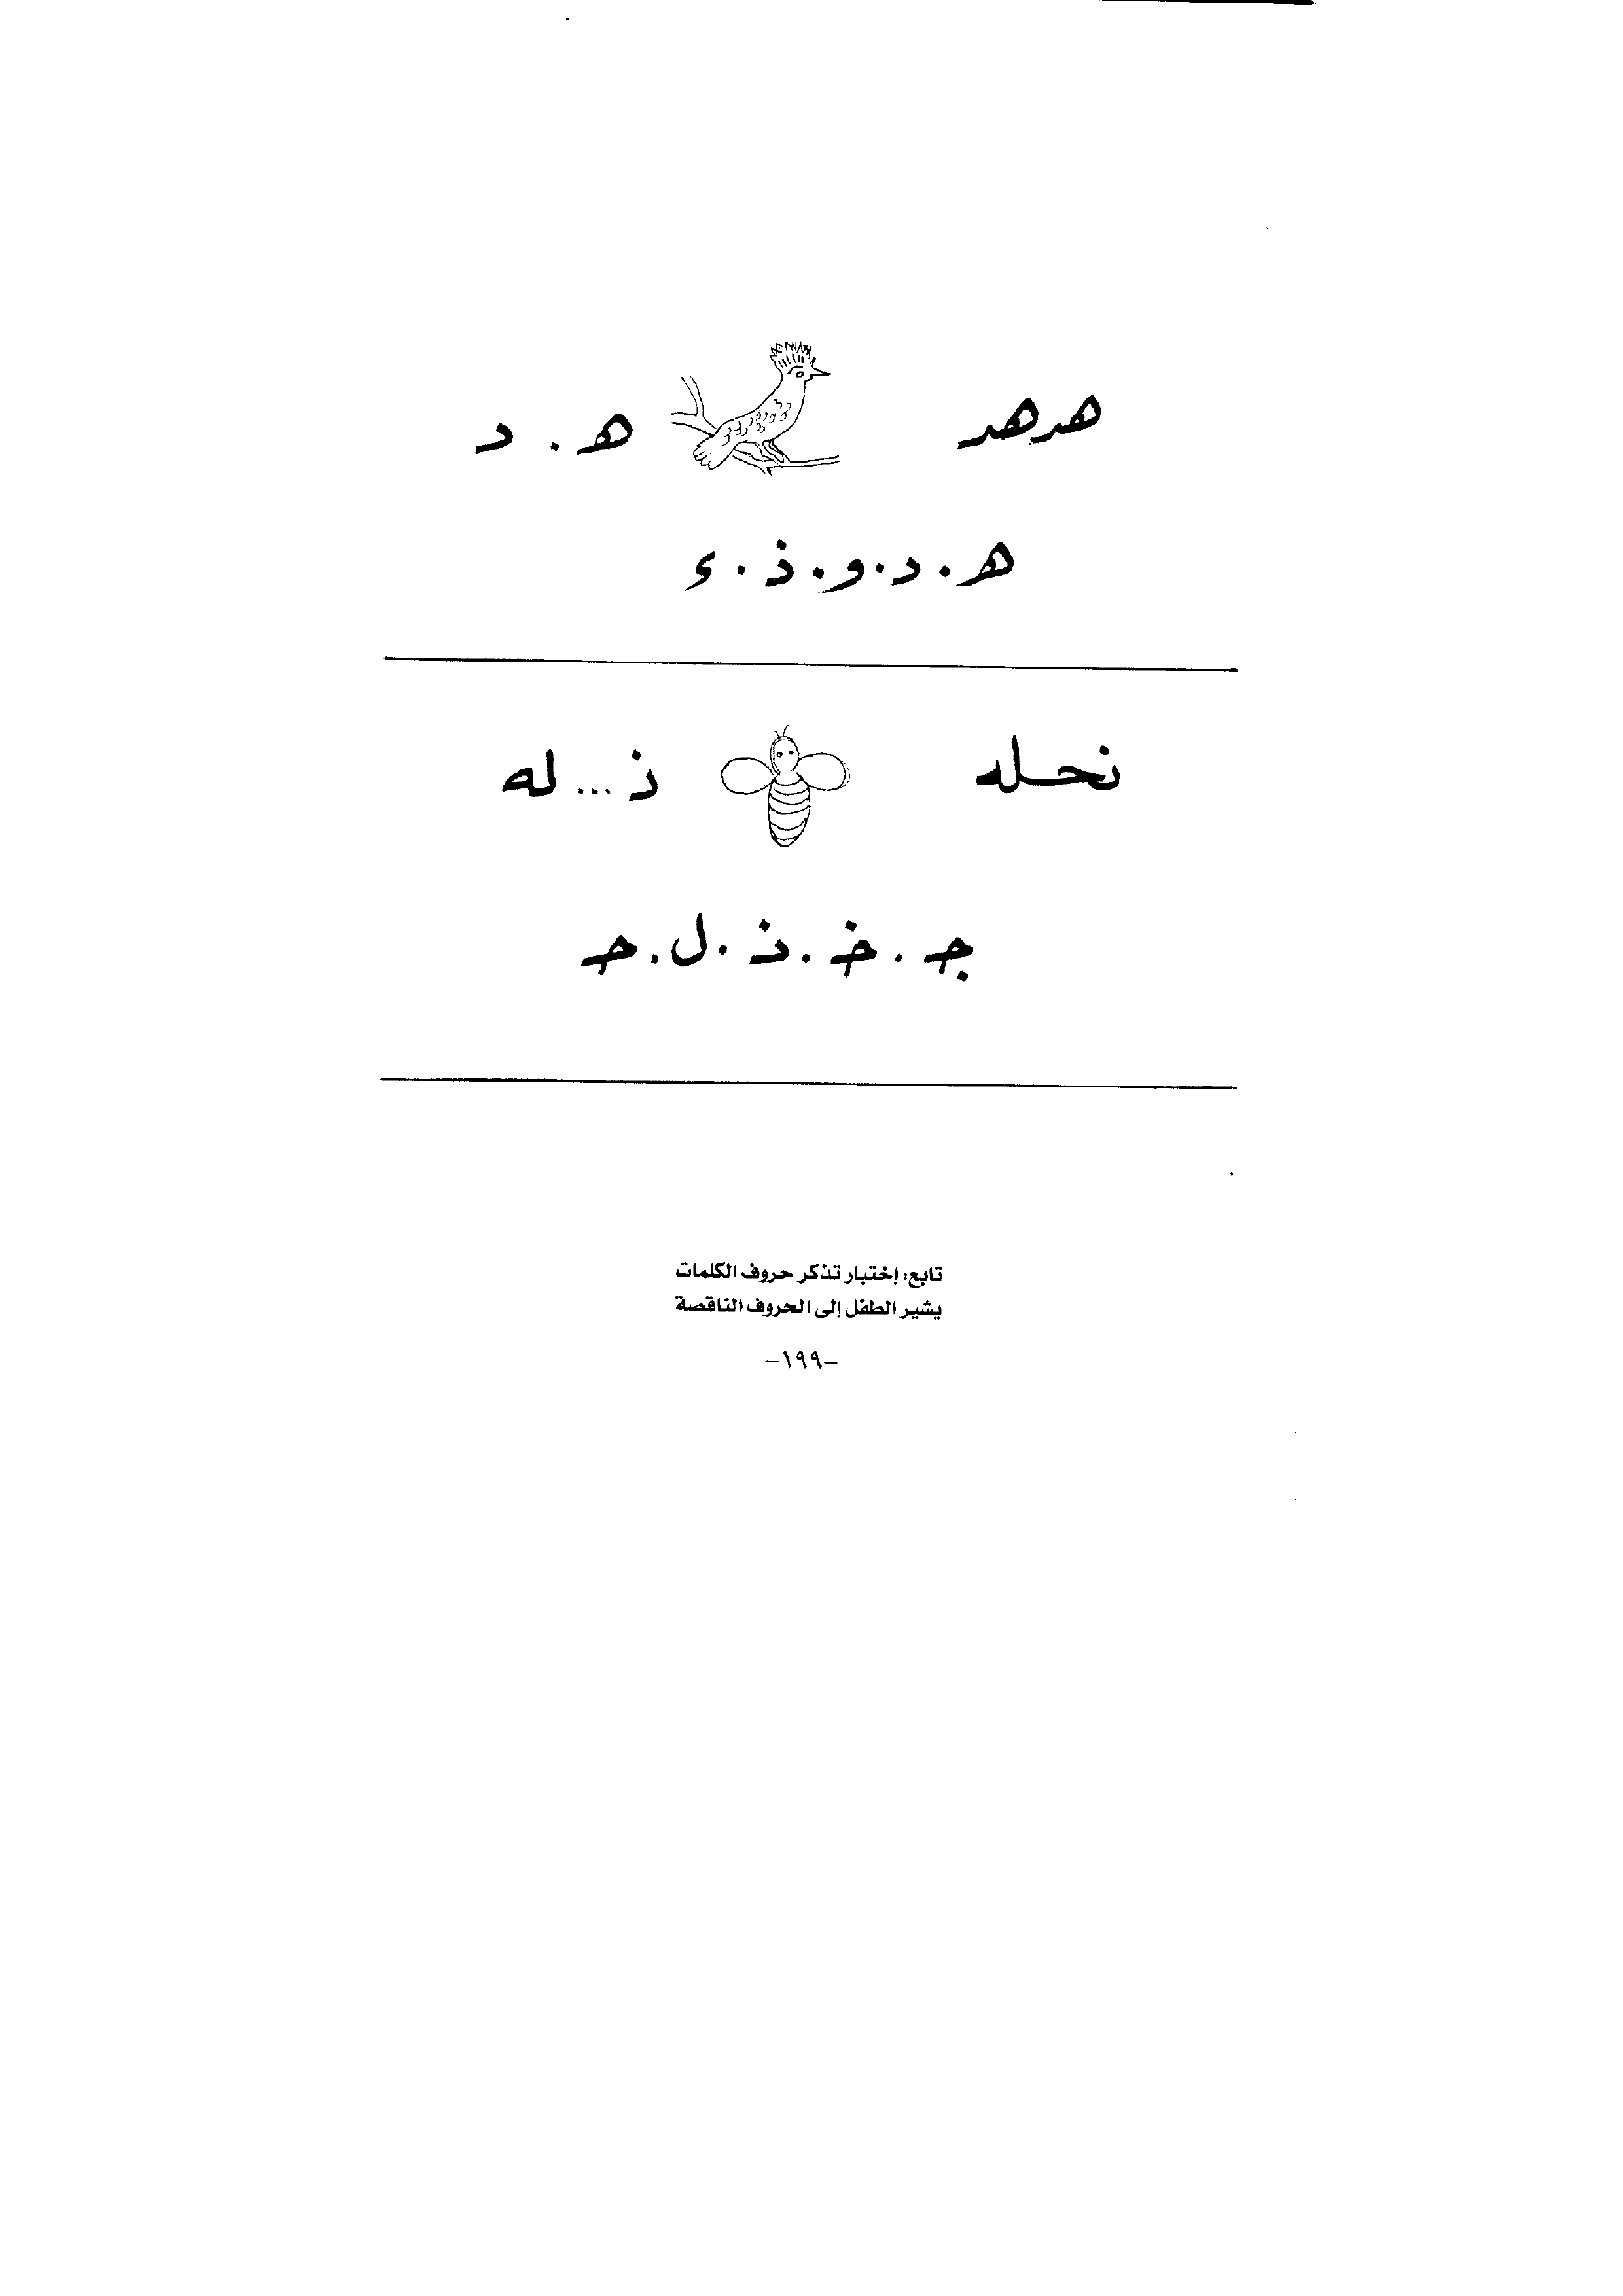 هدهد ه . د
ه . د . و . ذ . ء
نحله نـ ... له
جـ . خـ . نـ . ل . حـ
تابع: إختبار تذكر حروف الكلمات
يشير الطفل إلى الحروف الناقصة
-١٩٩-